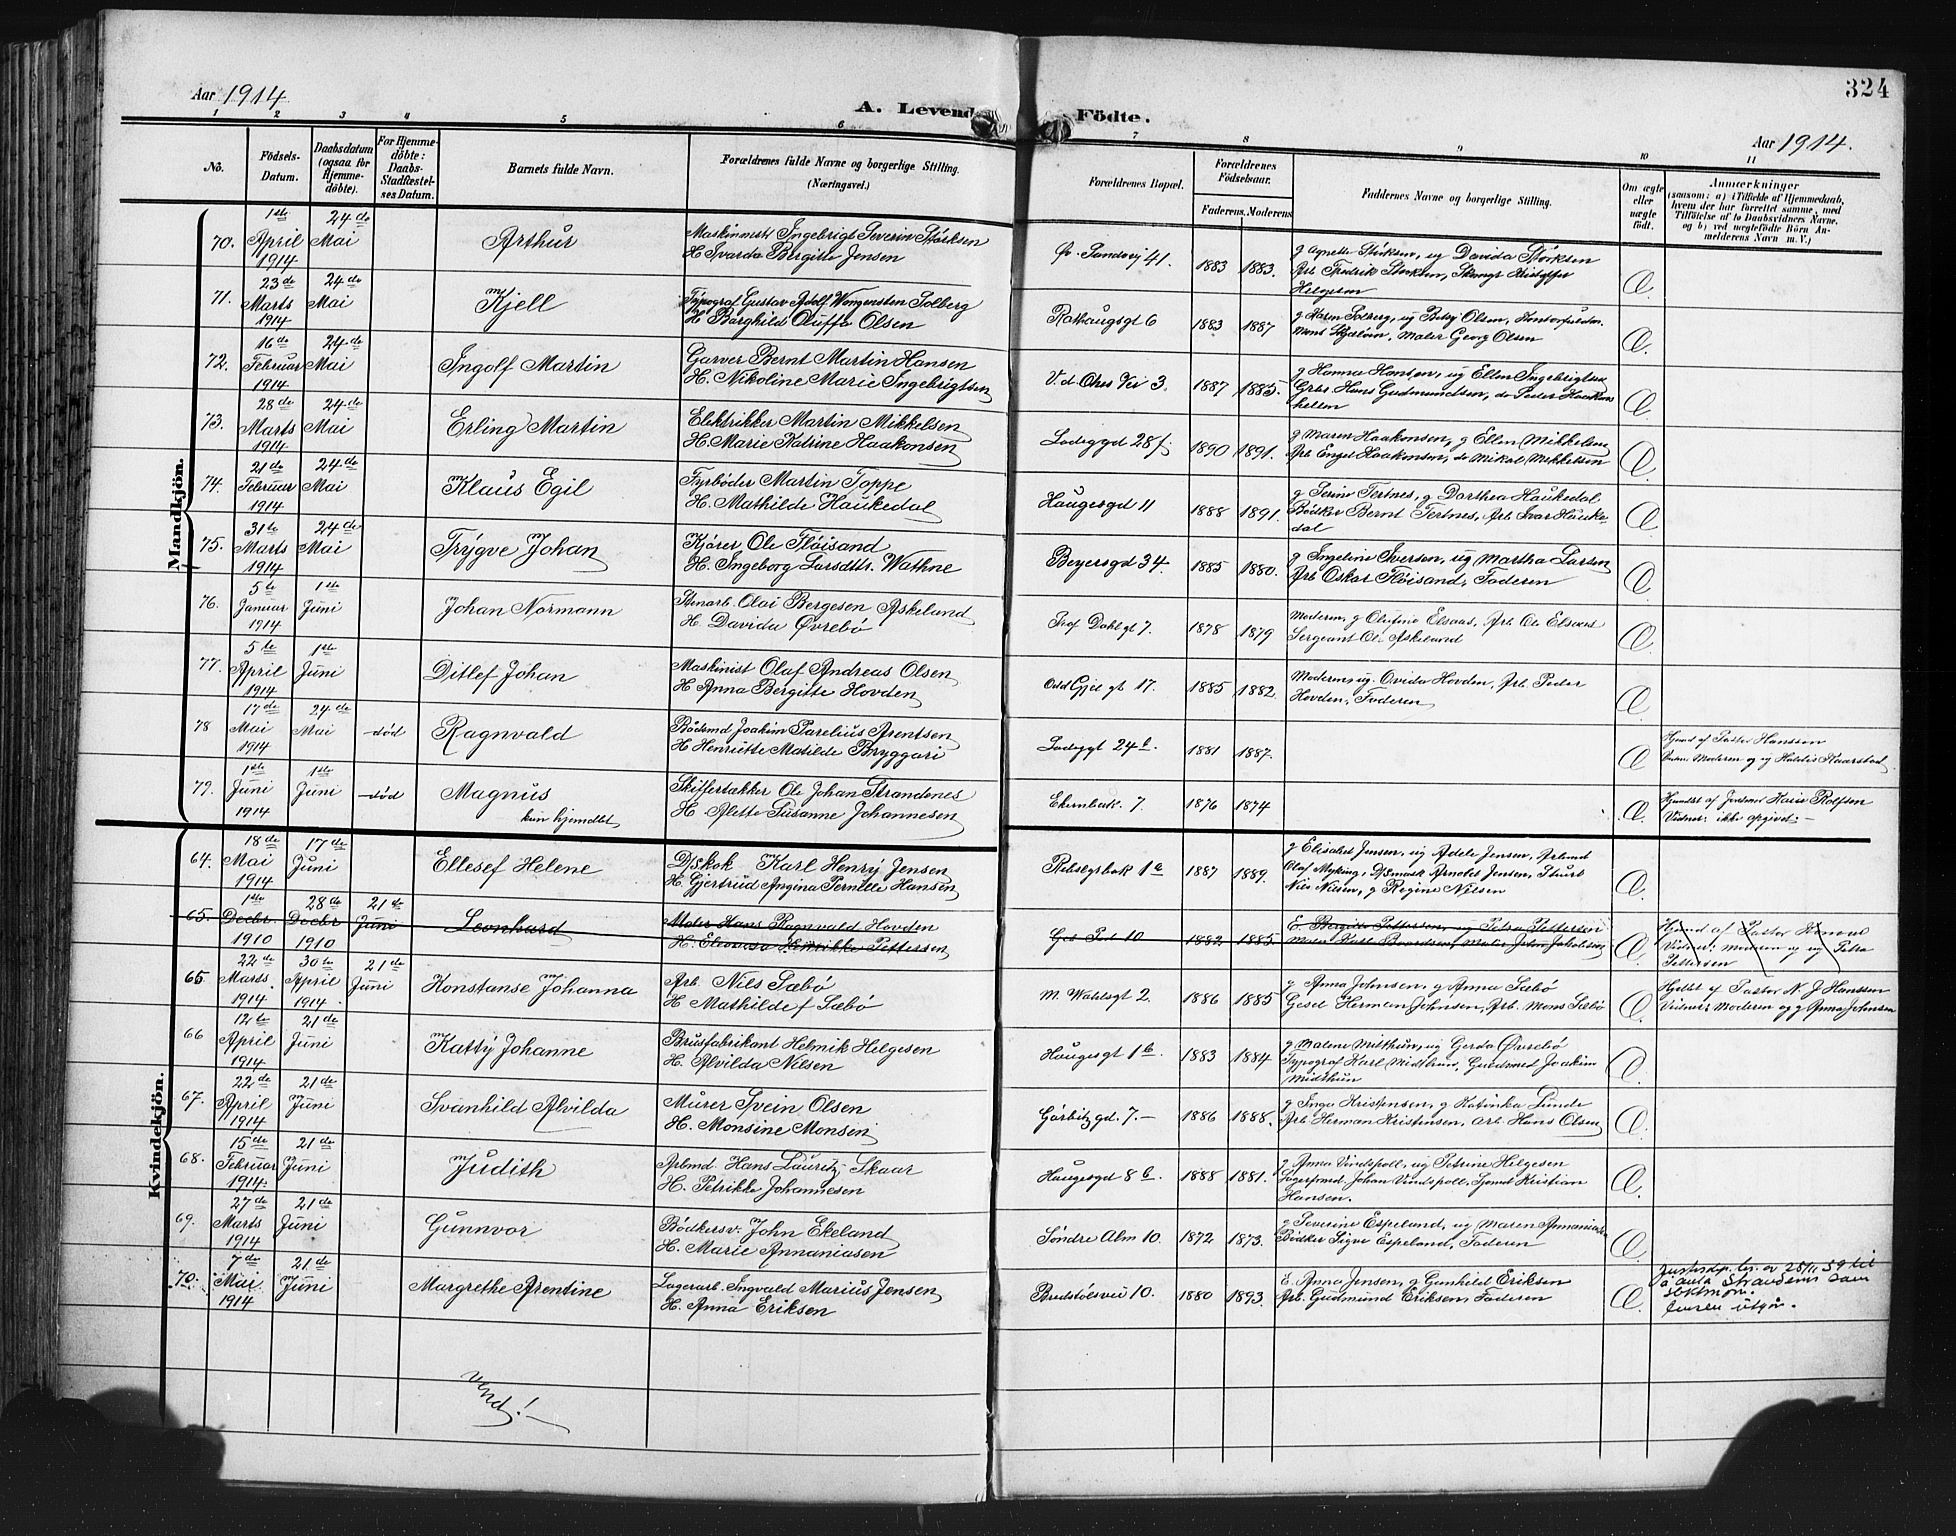 324
Aar 1914
A. Levende Födte.
Aar 1914.
1 2 3 4 5 6 7 8 9 10 11
No.
Födsels-
Datum.
Daabsdatum
(ogsaa for
Hjemme-
döbte).
For Hjemme-
döbte:
Daabs-
Stadfæstel-
ses Datum.
Barnets fulde Navn.
Forældrenes fulde Navne og borgerlige Stilling.
(Næringsvei.)
Forældrenes Bopæl.
Forældrenes
Födselsaar.
Faderens. Moderens
Faddernes Navne og borgerlige Stilling.
Om ægte
eller
uægte
födt.
Anmærkninger
(saasom: a) i Tilfælde af Hjemmedaab,
hvem der har forrettet samme, med
Tilföielse af to Daabsvidners Navne,
og b) ved uægtefödte Börn An-
melderens Navn m. V.)
Mandkjön.
70. 1ste April 1914 24de Mai Arthur
Maskinmest Ingebrigt Severin Störksen
H. Svarda Bergitte Jensen
Øv. Sandvej 41. 1883 1883.
g Agnethe Störksen, ug Davida Störksen
Arb. Fredrik Störksen,
Helgesen
71. 23de Marts 1914 24de Mai Kjell
Typograf Gustav Adolf Wongensten Solberg
H. Borghild Oluffa Olsen
Rathaugsgt 6 1883 1887
g Maren Solberg, ug Betsy Olsen,
Maler Georg Olsen
72. 16de Februar 1914 24de Mai Ingolf Martin
Garver Bernt Martin Hansen
H. Nikoline Marie Ingebrigtsen
1887 1885.
g Hanna Hansen, ug Ellen Ingebrigtsen
Grbr. Hans Gudmundsen, do Peder Haakons
hellen
73. 28de Marts 1914 24de Mai Erling Martin
Elektrikker Martin Mikkelsen
H. Marie Katrine Haakonsen
Ladeggd 28f 1890 1891.
g Maren Haakonsen, g Ellen Mikkelsen
Arb Engel Haakonsen, do Mikal Mikkelsen
74. 21de Februar 1914 24de Mai Klaus Egil
Fyrbøder Martin Toppe
H. Mathilde Haukedal
Haugesgd 11 1888 1891.
g Serine Tertnes, g Dorthea Haukedal
Bödker Bernt Tertnes, Arb. Ivar Hauke-
dal
75. 31te Marts 1914 24de Mai Trygve Johan
Kjører Ole Fløisand
H. Ingeborg Larsdtr. Wathne
Beyersgd 34. 1885 1880.
g Ingeline Iversen, ug Martha Larsen
Arb Oskar Fløisand, Faderen
76. 5te Januar 1914 1ste Juni Johan Normann
Stenarb. Olai Bergesen Askeland
H. Davida Øvrebø
Prof Dahlsgt 7. 1878 1879
Moderen, g Olufine Elsaas, Arb. Ole Elsaas
Sergeant Ole Askeland
77. 5te April 1914 1ste Juni Ditlef Johan
Maskinist Olaf Andreas Olsen
H Anna Bergitte Hovden
Odd Gjel gt 17. 1885 1882.
Moderen, ug. Ovida Hovden, Arb. Peder
Hovden, Faderen
78 17de Mai 1914 24de Mai -død Ragnvald
Bødsmd Joakim Parelius Arentsen
H Henriette Matilde Bryggari
Ladeggt 24b. 1881 1887.
Hjemd af Pastor Hanssen
Vidn. Moderen og ug Haldis Kaarstad
79. 1ste Juni 1914 1ste Juni -død Magnus
kun hjemdbt
Skiffertækker Ole Johan Strandenes
H. Alette Susanne Johannesen
Ekrenbak. 7. 1876 1874
Hjemdbt af Jordmor Kaia Rolfsen
Vidner: ikke opgivet. -
Kvindekjön.
64. 18de Mai 1914 17de Juni Ellesef Helene
D/skok Karl Henry Jensen
H. Gjertrud Angina Pernille Hansen
Rebslgrbak 1a 1887 1889.
g Elisabet Jensen, ug Adele Jensen, Arbmd
Olaf Myking, D/Smask Arnoldt Jensen, Stuert
Nils Nilsen, g Regine Nilsen
65. 1ste Decbr 1910 28de Decbr 1910 21de Juni Leonhard
Maler Hans Ragnvald Hovden
H. Eleonora Henrikke Pettersen
10 1882 1885
E. Bergitte Pettersen, ug Petra Pettersen
Maler Karl Maler John Jakobsen
Hjemd af Pastor
Vidner: Moderen og ug Petra
Pettersen
65 22de Marts. 1914 30te April 1914. 21de Juni Konstanse Johanna
Arb. Nils Sæbø
H. Mathilde f Sæbø
M. Wahlsgt 2. 1886 1885
g Anna Johnsen, g Anna Sæbø
Gesel Herman Johnsen, Arb. Mons Sæbø
Hjdbt af Pastor N. J. Hanssen
Vidner: Moderen og g Anna Johnsen
66 12te April 1914 21de Juni Katty Johanne
Brusfabrikant Helmik Helgesen
H. Alvilda Nilsen
Haugesgt 1b. 1883 1884
g Malene Midthun, ug Gerda Øvrebø
Typograf Karl Midthun, Gudsmed Joakim
Midthun
67. 22de April 1914 21de Juni Svanhild Alvilda
Murer Svein Olsen
H. Monsine Monsen
Gørbitz gd. 7. - 1886 1888.
g Inga Kristensen, g Katinka Lunde
Arb Herman Kristensen, Arb. Hans Olsen
68. 15de Februar 1914. 21de Juni Judith
Arbmd. Hans Lauritz Skaar
H. Petrikke Johannesen
Haugesgd 8b. 1888 1881.
g Anna Vindspoll, ug Petrine Helgesen
Johan Vindspoll, Sjømd Kristian
Hansen.
69. 27de Marts 1914 21de Juni Gunnvor
Bødkersv. John Ekeland
H. Marie Annaniasen
Søndre Alm 10. 1872 1873.
g Severine Espeland, ug Maren Annaniasen
Bødker Sigve Espeland, Faderen
70. 7de Mai 1914 21de Juni Margrethe Arentine
Lagerarb. Ingvald Marius Jensen
H. Anna Eriksen
Brødstølsvei 10. 1880 1893.
E. Anna Jensen, g Gunhild Eriksen
Arb. Gudmund Eriksen, Faderen
Justisdp. bev. av 28/11 39 til
å anta Strandenes som
slektsnavn.
Jensen utgår.
Vend! -